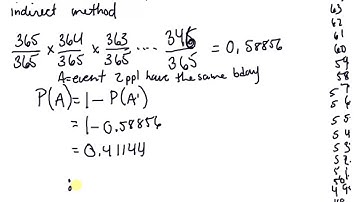 indirect method
365/365 x 364/365 x 363/365 .... 346/365 = 0,58856
A=event 2 ppl have the same bday
P(A)=1-P(A')
=1-0.58856
=0.41144
63
62
61
60
59
58
57
56
55
54
53
52
51
50
49
48